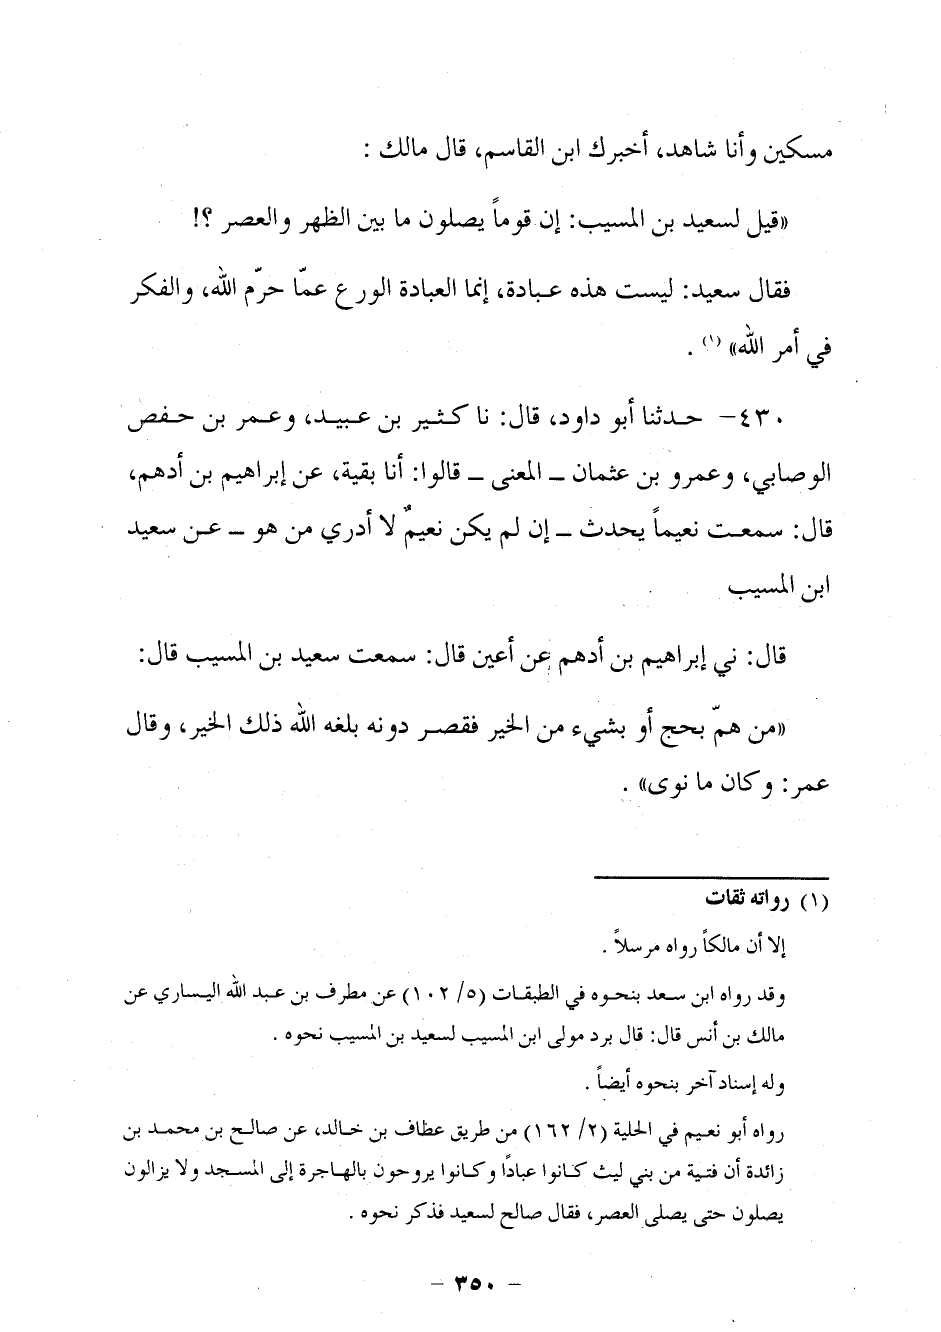 مسكين وأنا شاهد، أخبرك ابن القاسم، قال مالك :
«قيل لسعيد بن المسيب: إن قوماً يصلون ما بين الظهر والعصر ؟!
فقال سعيد: ليست هذه عبادة، إنما العبادة الورع عمّا حرّم الله، والفكر
في أمر الله» (١) .
٤٣٠- حدثنا أبو داود، قال: نا كثير بن عبيد، وعمر بن حفص
الوصابي، وعمرو بن عثمان ــ المعنى ــ قالوا: أنا بقية، عن إبراهيم بن أدهم،
قال: سمعت نعيماً يحدث ــ إن لم يكن نعيمٌ لا أدري من هو ــ عن سعيد
ابن المسيب
قال: ني إبراهيم بن أدهم عن أعين قال: سمعت سعيد بن المسيب قال:
«من همّ بحج أو بشيء من الخير فقصر دونه بلغه الله ذلك الخير، وقال
عمر: وكان ما نوى» .
(١) رواته ثقات
إلا أن مالكاً رواه مرسلاً .
وقد رواه ابن سعد بنحوه في الطبقات (٥/ ١٠٢) عن مطرف بن عبد الله اليساري عن
مالك بن أنس قال: قال برد مولى ابن المسيب لسعيد بن المسيب نحوه .
وله إسناد آخر بنحوه أيضاً .
رواه أبو نعيم في الحلية (٢/ ١٦٢) من طريق عطاف بن خالد، عن صالح بن محمد بن
زائدة أن فتية من بني ليث كانوا عباداً وكانوا يروحون بالهاجرة إلى المسجد ولا يزالون
يصلون حتى يصلى العصر، فقال صالح لسعيد فذكر نحوه .
– ٣٥٠ –